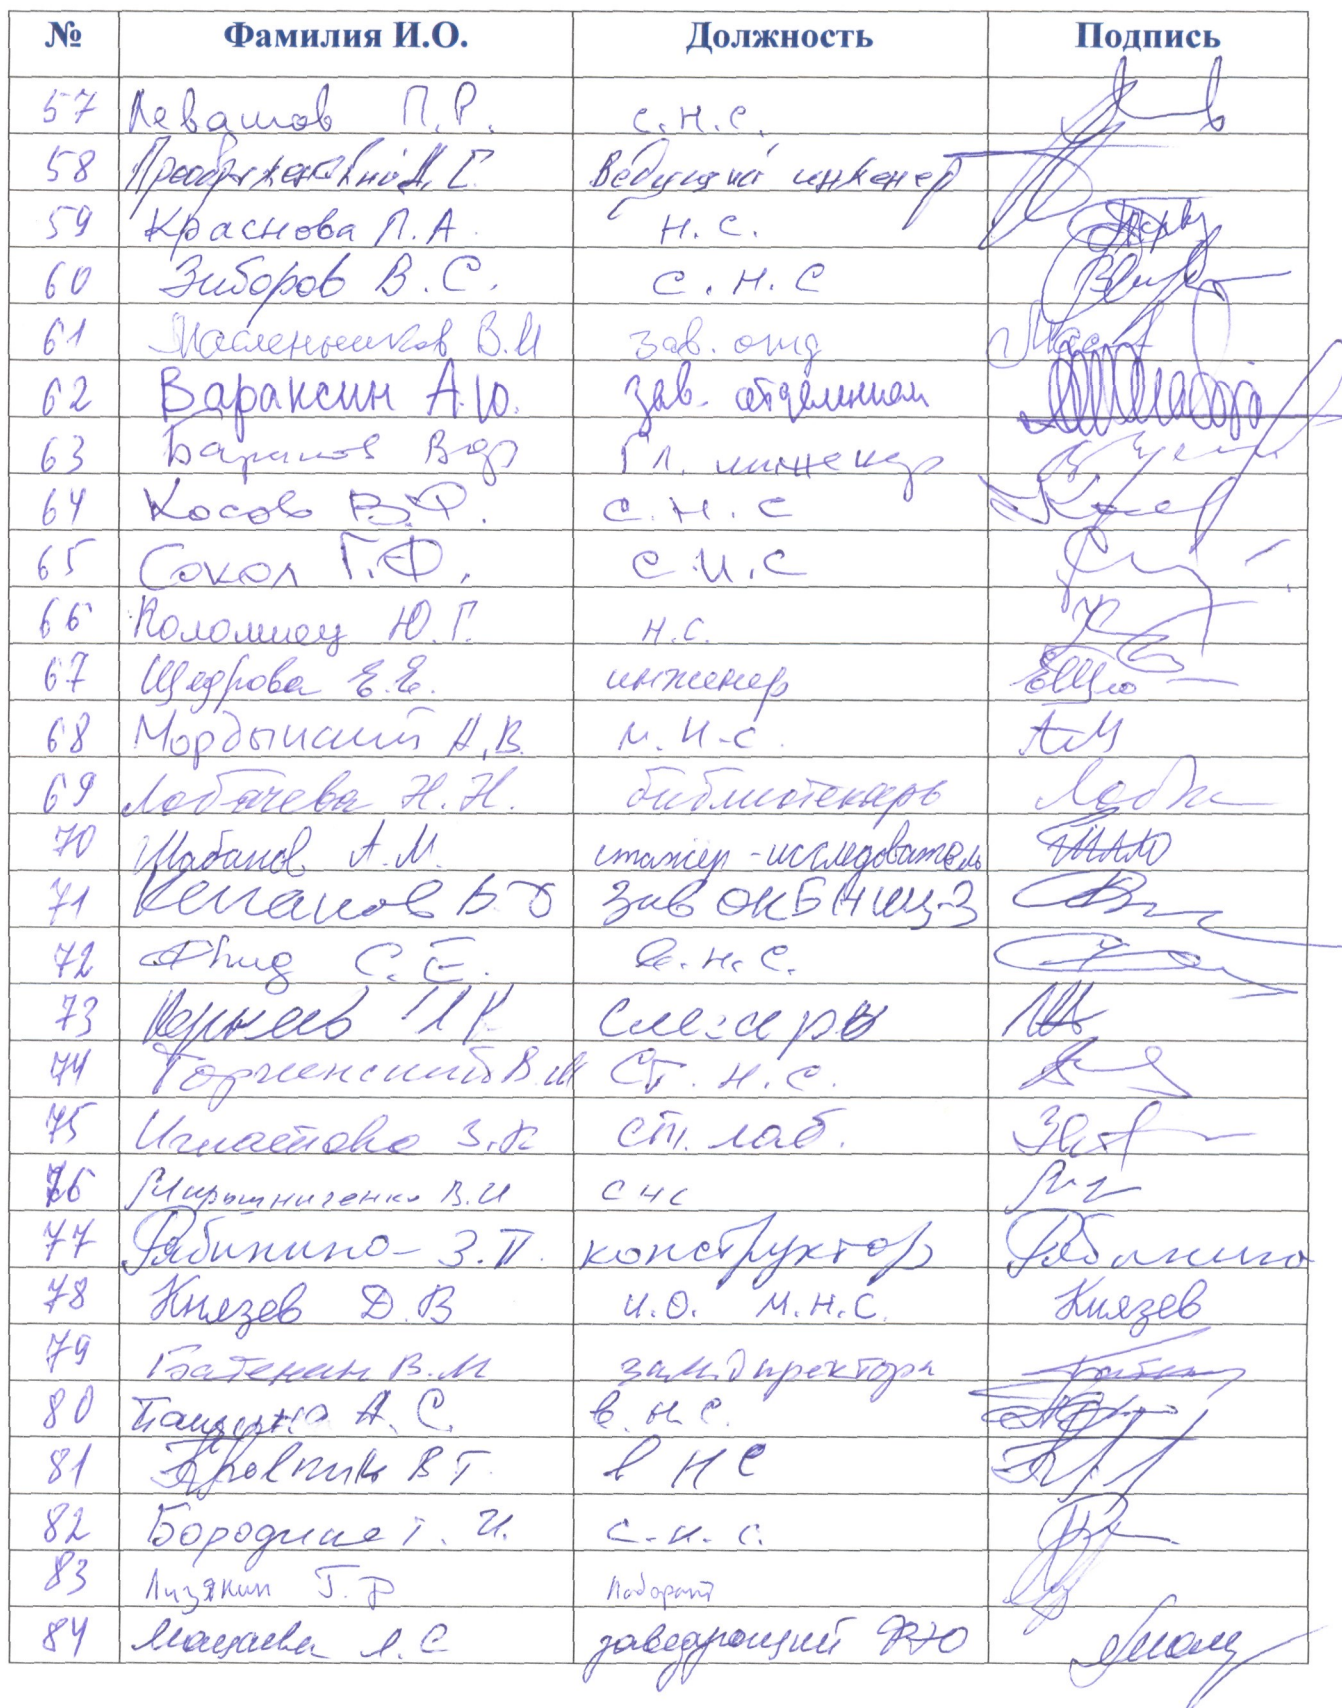 № Фамилия И.О. Должность Подпись
57 Левашов П.Р. с.н.с.
58 Ведущий инженер
59 Краснова П.А. н.с.
60 Зиборов В.С. с.н.с
61 Масленников В.М зав. отд
62 Вараксин А.Ю. зав. отделением
63 Гл. инженер
64 Косов В.Ф. с.н.с
65 Сокол Г.Ф. с.н.с
66 Коломиец Ю.Г. н.с.
67 Щедрова Е.Е. инженер
68 Мордынский А.В. м.н.с. АМ
69 Лобачева Н.Н. библиотекарь
70 Шабанов А.М. стажер-исследователь
71 зав ОКБ НИЦ-3
72 Фрид С.Е. в.н.с.
73
74 Торчинский В.М Ст. н.с.
75 Игнатова З.К ст. лаб.
76 Мирошниченко В.И снс
77 Рябинина З.П. конструктор Рябинина
78 Князев Д.В и.о. м.н.с. Князев
79 Батенин В.М зам.директора
80 А.С. в.н.с.
81 В Г. в НС
82 Бородина Т.И. с.н.с.
83 Лизякин Г.Д лаборант
84 Л.С заведующий